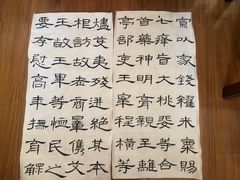 燼芟夷殘迸絕其本
根遂訪故老商量儁艾
王敞王畢等恤民之
要存慰高年撫育鰥
寡以家錢糴米粟賜
癃盲大女桃婓等合
七首藥神明膏親至離
亭部吏王皋程橫等